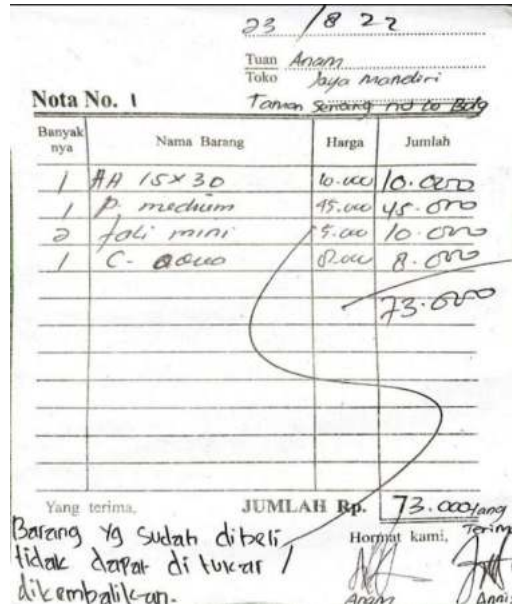 23 / 8 22
Tuan Anam
Toko Jaya Mandiri
Nota No. 1
Taman Senang no 60 Bdg
Banyak nya Nama Barang Harga Jumlah
1 AA 15x30 10.000 10.000
1 p. medium 45.000 45.000
2 tali mini 5.000 10.000
1 C- 8.000 8.000
73.000
Yang terima, JUMLAH Rp. 73.000
Barang yg sudah dibeli
tidak dapat di tukar /
dikembalikan.
Hormat kami,
Yang
Terima
Anam
Annis